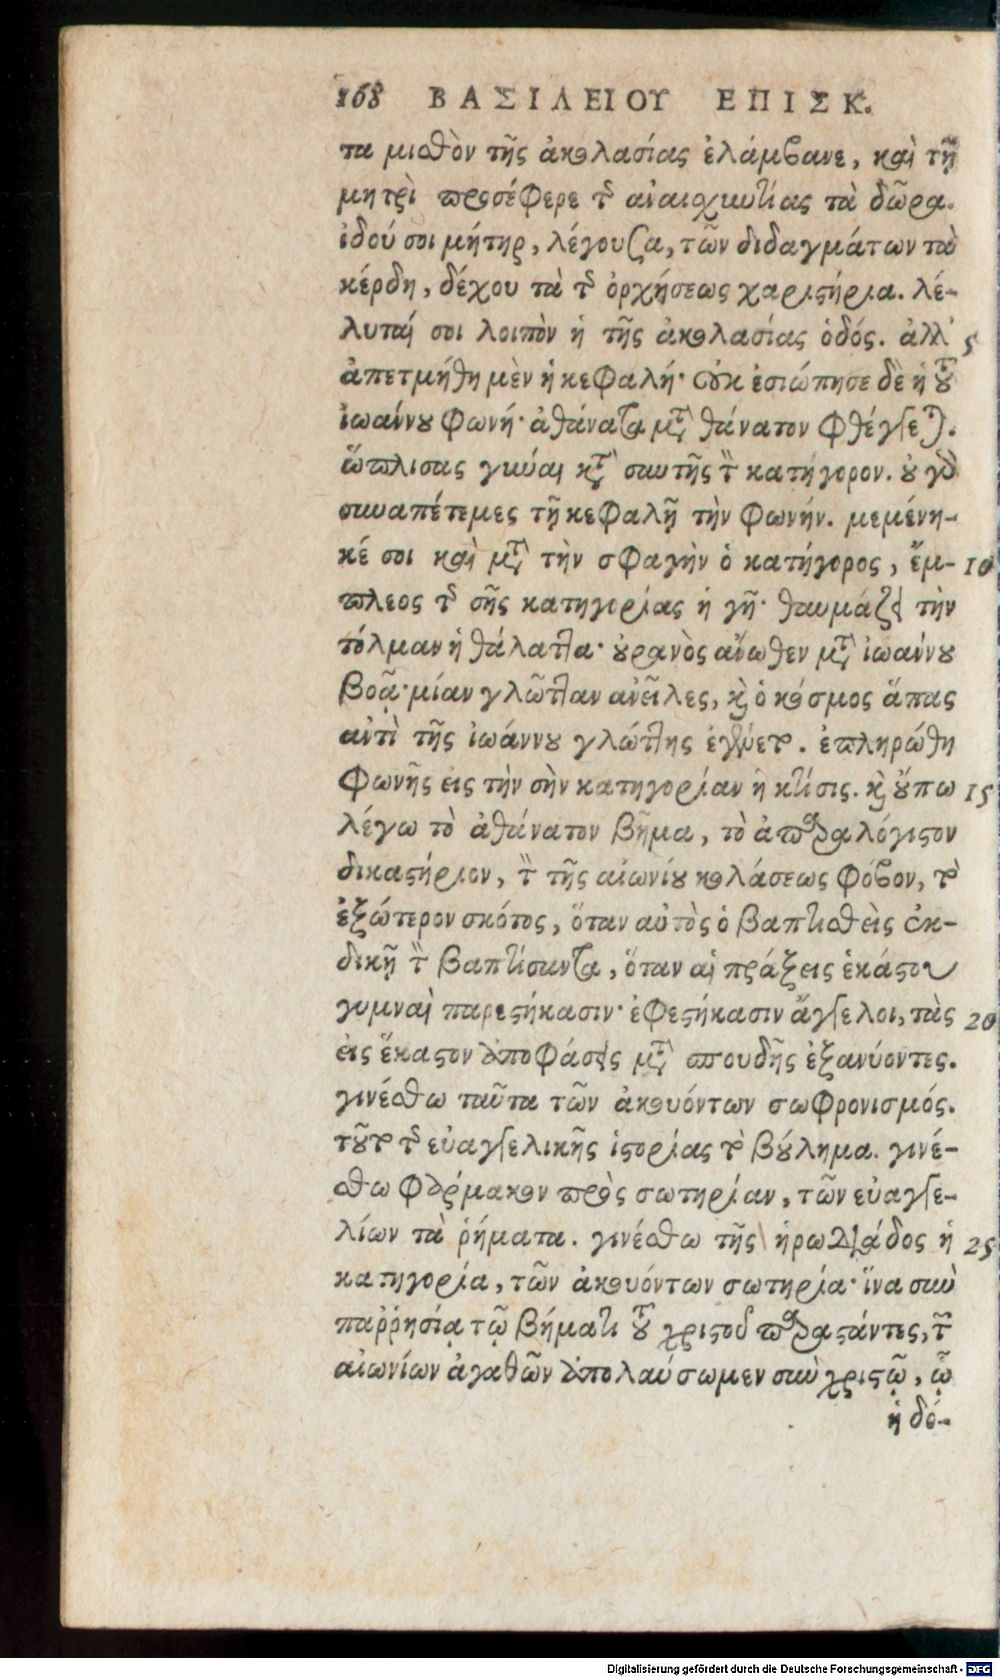 168 ΒΑΣΙΛΕΙΟΥ ΕΠΙΣΚ.
τα μισθὸν τῆς ἀκολασίας ἐλάμβανε, καὶ τῇ
μητρὶ προσέφερε τῆς ἀναισχυντίας τὰ δῶρα.
ἰδού σοι μήτηρ, λέγουσα, τῶν διδαγμάτων τὰ
κέρδη, δέχου τὰ τῆς ὀρχήσεως χαριστήρια. λέ-
λυταί σοι λοιπὸν ἡ τῆς ἀκολασίας ὁδός. ἀλλ' 5
ἀπετμήθη μὲν ἡ κεφαλή· οὐκ ἐσιώπησε δὲ ἡ τοῦ
ἰωάννου φωνή· ἀθάνατα μετὰ θάνατον φθέγγεται.
ὥπλισας γύναι κατὰ σαυτῆς τὸν κατήγορον. οὐ γὰρ
συναπέτεμες τῇ κεφαλῇ τὴν φωνήν. μεμένη-
κέ σοι καὶ μετὰ τὴν σφαγὴν ὁ κατήγορος, ἔμ- 10
πλεος τῆς σῆς κατηγορίας ἡ γῆ· θαυμάζει τὴν
τόλμαν ἡ θάλαττα· οὐρανὸς ἄνωθεν μετὰ ἰωάννου
βοᾷ· μίαν γλῶτταν ἀνεῖλες, καὶ ὁ κόσμος ἅπας
ἀντὶ τῆς ἰωάννου γλώττης ἐγένετο. ἐπληρώθη
φωνῆς εἰς τὴν σὴν κατηγορίαν ἡ κτίσις. καὶ οὔπω 15
λέγω τὸ ἀθάνατον βῆμα, τὸ ἀπαραλόγιστον
δικαστήριον, τὸν τῆς αἰωνίου κολάσεως φόβον, τὸ
ἐξώτερον σκότος, ὅταν αὐτὸς ὁ βαπτισθεὶς ἐκ-
δικῇ τὸν βαπτίσαντα, ὅταν αἱ πράξεις ἑκάστου
γυμναὶ παρεστήκασιν· ἐφεστήκασιν ἄγγελοι, τὰς 20
εἰς ἕκαστον ἀποφάσεις μετὰ σπουδῆς ἐξανύοντες.
γινέσθω ταῦτα τῶν ἀκουόντων σωφρονισμός.
τοῦτο τῆς εὐαγγελικῆς ἱστορίας τὸ βούλημα. γινέ-
σθω φάρμακον πρὸς σωτηρίαν, τῶν εὐαγγε-
λίων τὰ ῥήματα. γινέσθω τῆς ἡρωδιάδος ἡ 25
κατηγορία, τῶν ἀκουόντων σωτηρία· ἵνα σὺν
παῤῥησίᾳ τῷ βήματι τοῦ χριστοῦ παραστάντες, τῶν
αἰωνίων ἀγαθῶν ἀπολαύσωμεν σὺν χριστῷ, ᾧ
ἡ δό-
Digitalisierung gefördert durch die Deutsche Forschungsgemeinschaft - DFG